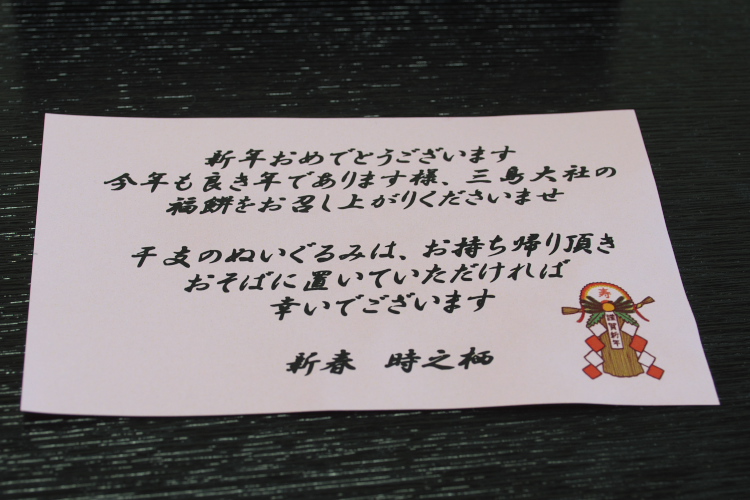 新年おめでとうございます
今年も良き年であります様、三島大社の
福餅をお召し上がりくださいませ
干支のぬいぐるみは、お持ち帰り頂き
おそばに置いていただければ
幸いでございます
新春 時之栖
寿
謹賀新年